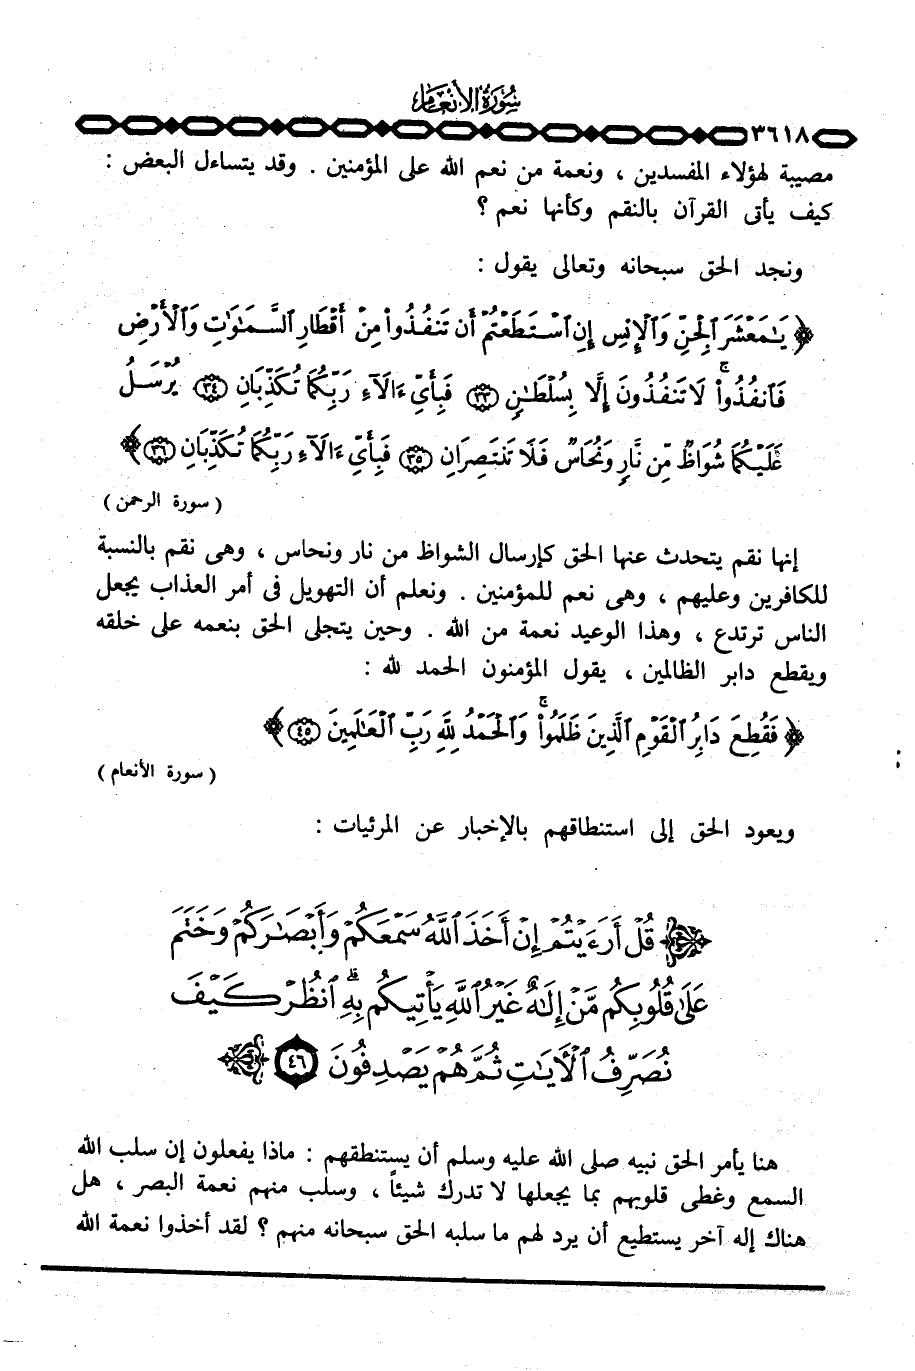 سُورَةُ الأَنْعَامِ
٣٦١٨
مصيبة لهؤلاء المفسدين ، ونعمة من نعم الله على المؤمنين . وقد يتساءل البعض :
كيف يأتى القرآن بالنقم وكأنها نعم ؟
ونجد الحق سبحانه وتعالى يقول :
﴿ يَٰمَعْشَرَ ٱلْجِنِّ وَٱلْإِنسِ إِنِ ٱسْتَطَعْتُمْ أَن تَنفُذُوا۟ مِنْ أَقْطَارِ ٱلسَّمَٰوَٰتِ وَٱلْأَرْضِ
فَٱنفُذُوا۟ ۚ لَا تَنفُذُونَ إِلَّا بِسُلْطَٰنٍ ٣٣ فَبِأَىِّ ءَالَآءِ رَبِّكُمَا تُكَذِّبَانِ ٣٤ يُرْسَلُ
عَلَيْكُمَا شُوَاظٌ مِّن نَّارٍ وَنُحَاسٌ فَلَا تَنتَصِرَانِ ٣٥ فَبِأَىِّ ءَالَآءِ رَبِّكُمَا تُكَذِّبَانِ ٣٦ ﴾
( سورة الرحمن )
إنها نقم يتحدث عنها الحق كإرسال الشواظ من نار ونحاس ، وهى نقم بالنسبة
للكافرين وعليهم ، وهى نعم للمؤمنين . ونعلم أن التهويل فى أمر العذاب يجعل
الناس ترتدع ، وهذا الوعيد نعمة من الله . وحين يتجلى الحق بنعمه على خلقه
ويقطع دابر الظالمين ، يقول المؤمنون الحمد لله :
﴿ فَقُطِعَ دَابِرُ ٱلْقَوْمِ ٱلَّذِينَ ظَلَمُوا۟ ۚ وَٱلْحَمْدُ لِلَّهِ رَبِّ ٱلْعَٰلَمِينَ ٤٥ ﴾
( سورة الأنعام )
ويعود الحق إلى استنطاقهم بالإخبار عن المرئيات :
﴿ قُلْ أَرَءَيْتُمْ إِنْ أَخَذَ ٱللَّهُ سَمْعَكُمْ وَأَبْصَٰرَكُمْ وَخَتَمَ
عَلَىٰ قُلُوبِكُم مَّنْ إِلَٰهٌ غَيْرُ ٱللَّهِ يَأْتِيكُم بِهِ ۗ ٱنظُرْ كَيْفَ
نُصَرِّفُ ٱلْءَايَٰتِ ثُمَّ هُمْ يَصْدِفُونَ ٤٦ ﴾
هنا يأمر الحق نبيه صلى الله عليه وسلم أن يستنطقهم : ماذا يفعلون إن سلب الله
السمع وغطى قلوبهم بما يجعلها لا تدرك شيئاً ، وسلب منهم نعمة البصر ، هل
هناك إله آخر يستطيع أن يرد لهم ما سلبه الحق سبحانه منهم ؟ لقد أخذوا نعمة الله